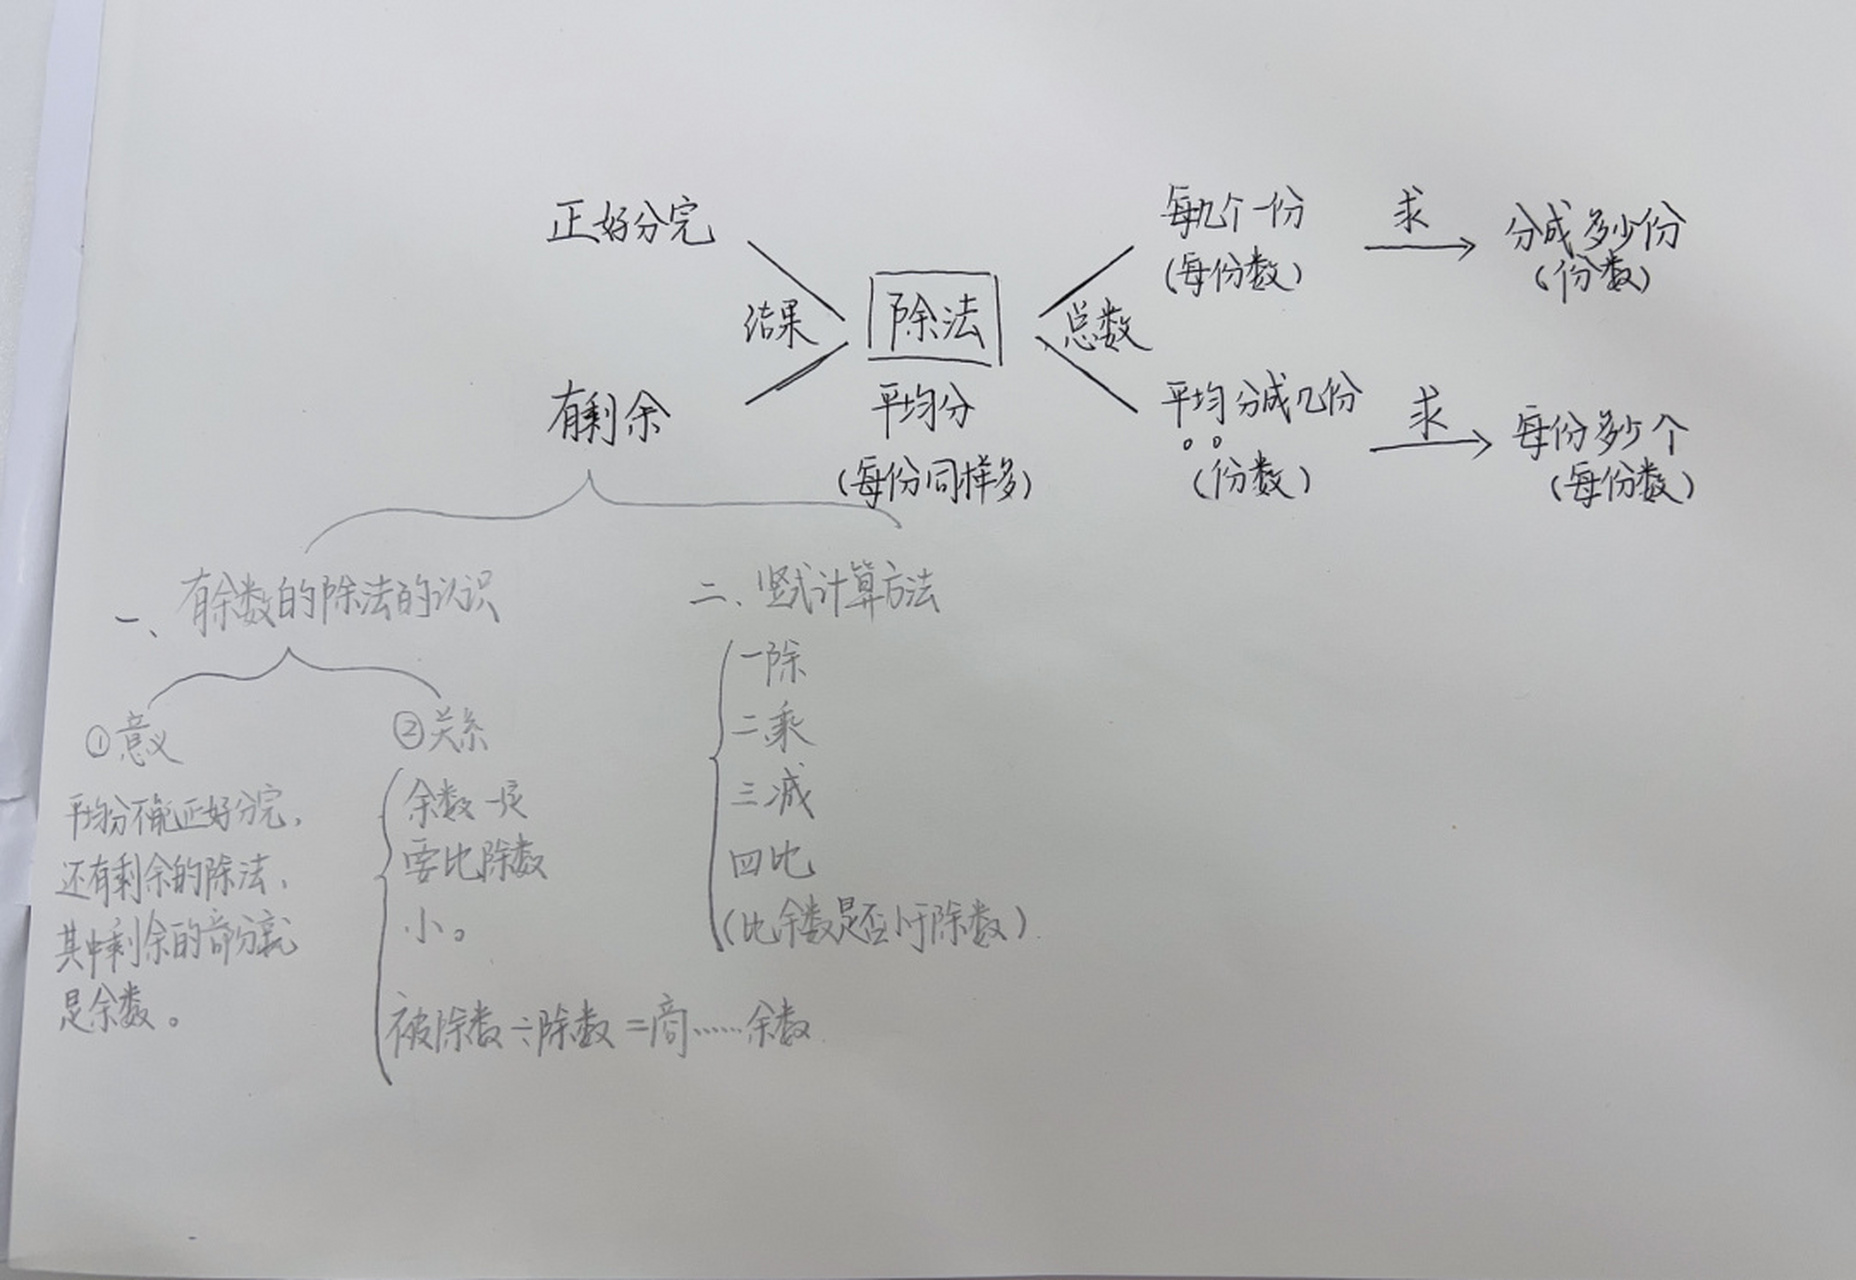 正好分完
结果
有剩余
除法
平均分
(每份同样多)
总数
每几个一份
(每份数)
求
分成多少份
(份数)
平均分成几份
(份数)
求
每份多少个
(每份数)
一、有余数的除法的认识
①意义
平均分不能正好分完,
还有剩余的除法,
其中剩余的部分就
是余数。
②关系
余数一定
要比除数
小。
被除数÷除数=商……余数
二、竖式计算方法
一除
二乘
三减
四比
(比余数是否小于除数)